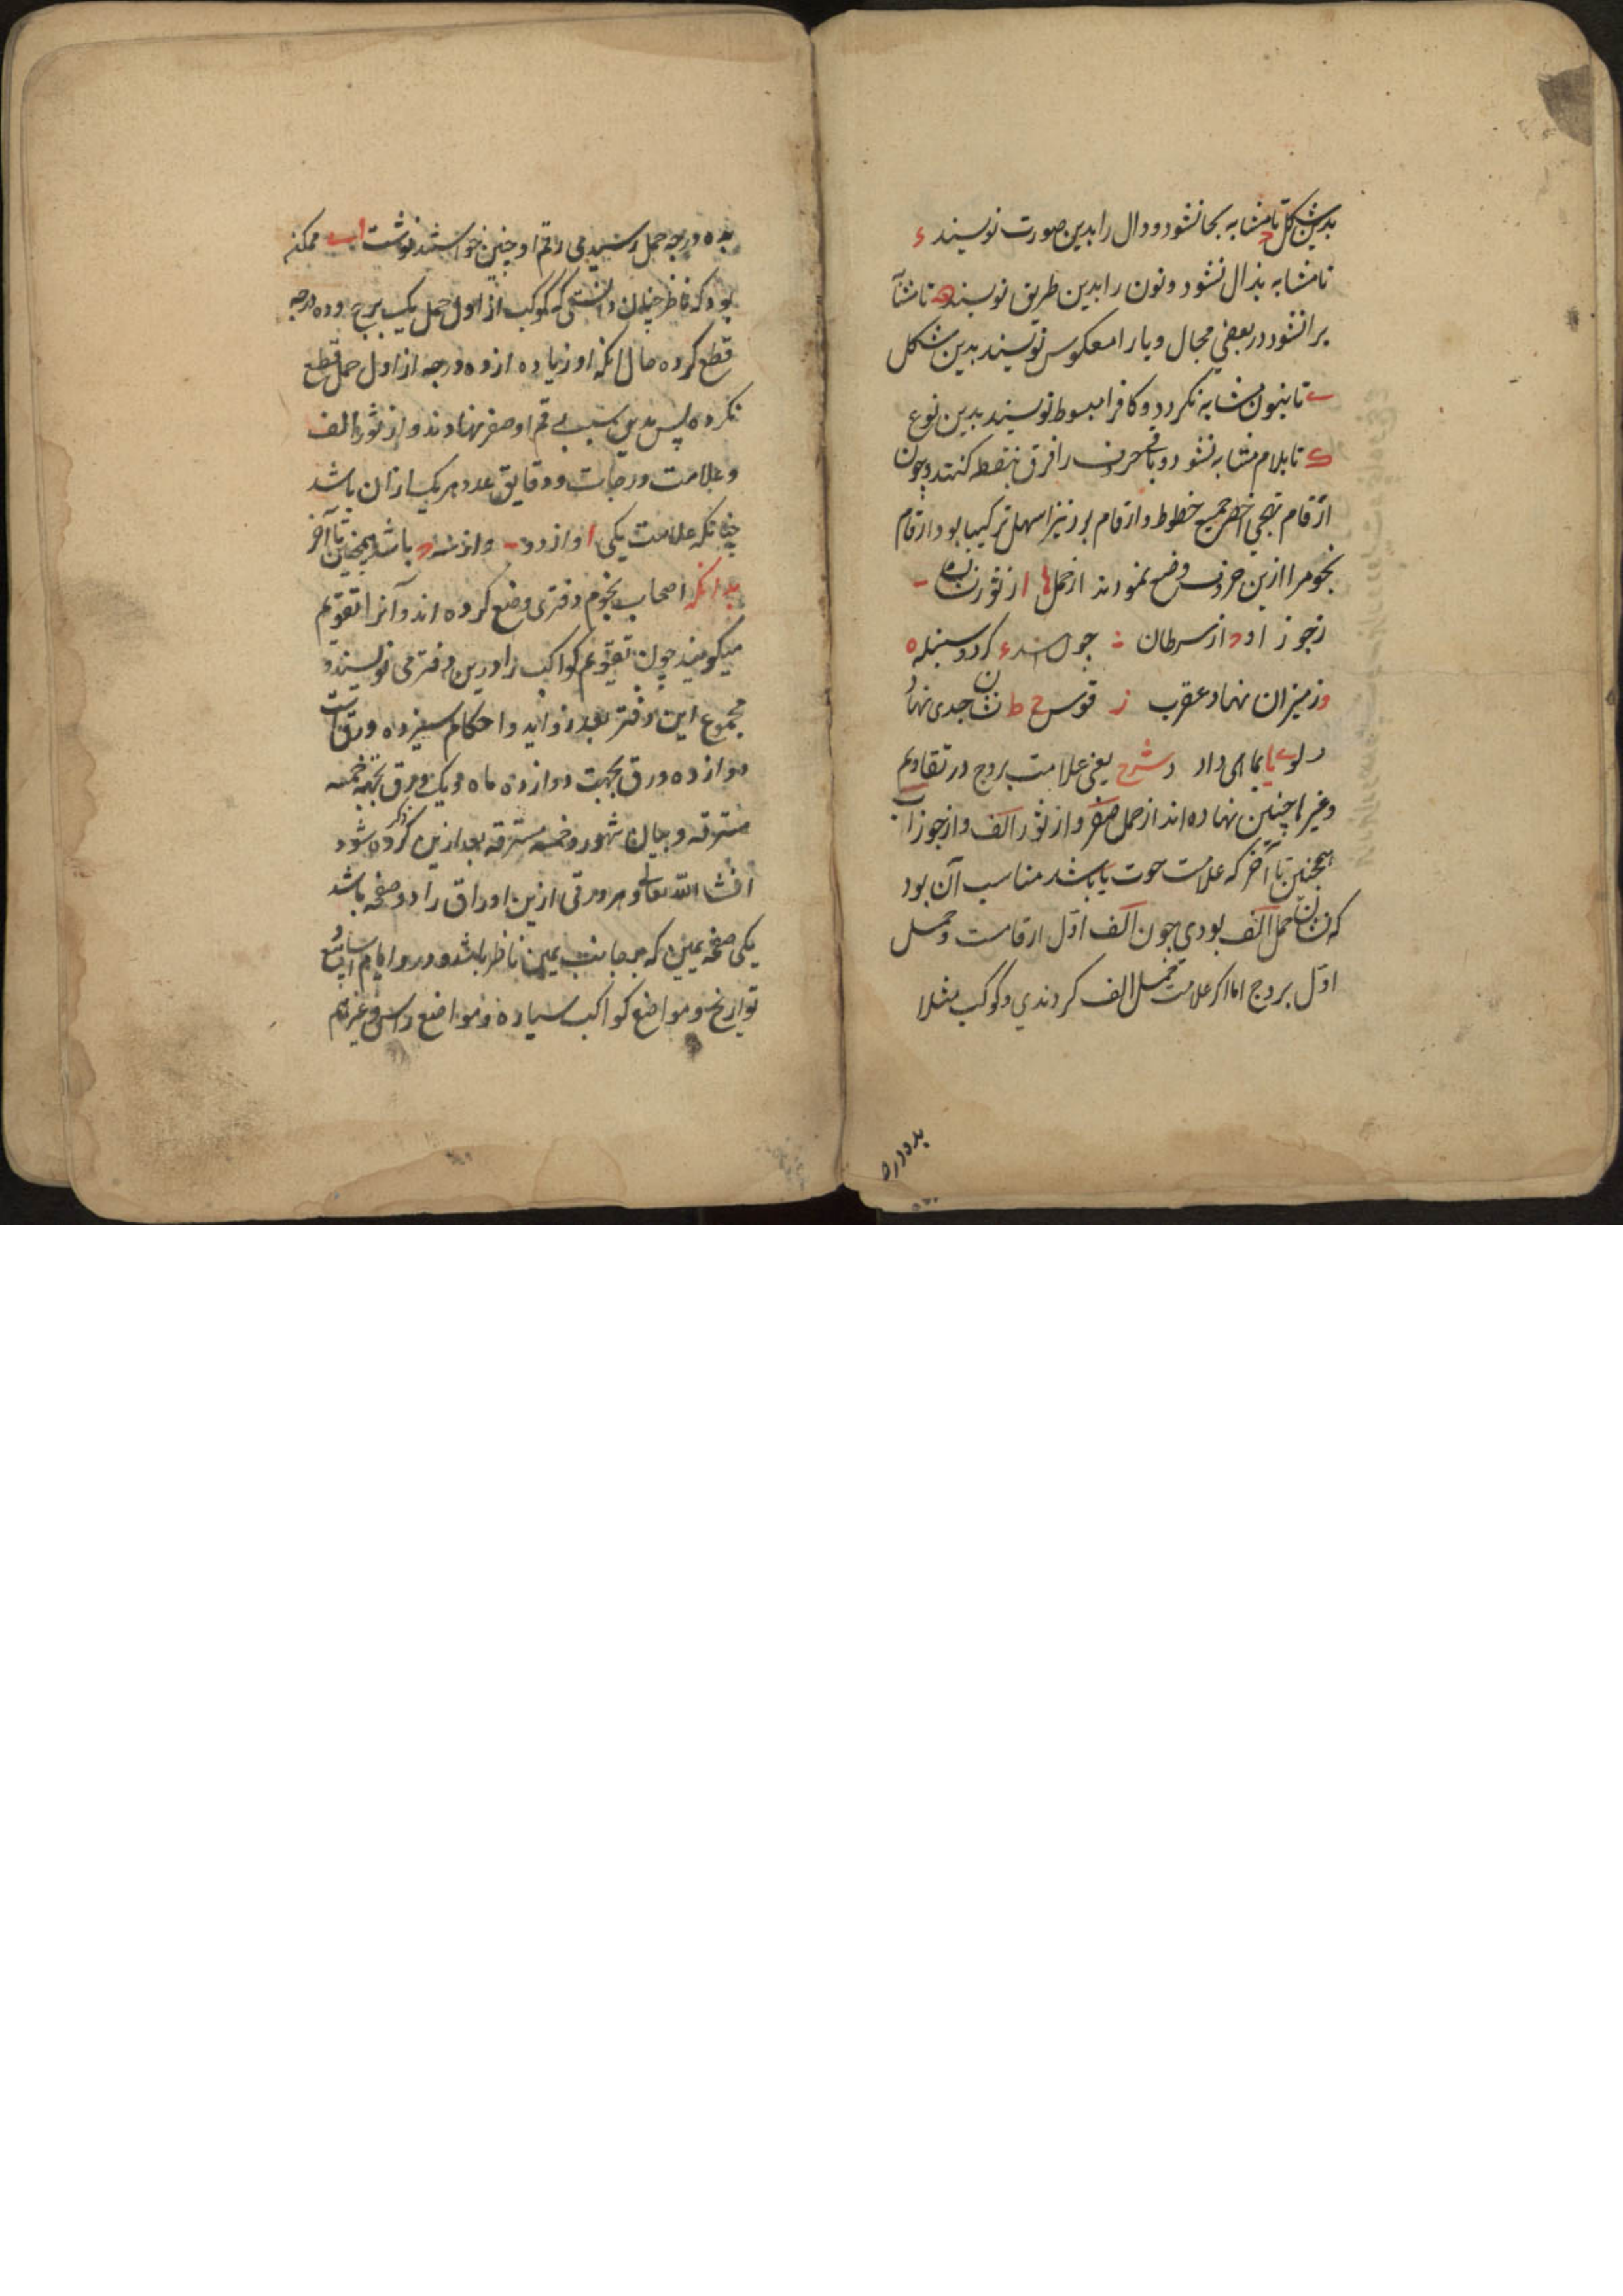 بدین شکل ح تا مشابه بجا نشود و دال را بدین صورت نویسند ء
تا مشابه بذال نشود و نون را بدین طریق نویسند تا مشابه
برا نشود در بعضی محال و یا را معکوس نویسند بدین شکل
ے تا بنون مشابه نکردد و کاف را مبسوط نویسند بدین نوع
ک تا بلام مشابه نشود و باقی حروف را فرق بنقطه کنند و چون
ارقام تهجی اخصر جمیع خطوط و ارقام بود نیز اسهل ترکیبا بود ارقام
نجوم را ازین حروف وضع نمودند از حمل ا از ثور نشان
ز جوزا و ح از سرطان چون اسد ء کرد و سنبله ه
و ز میزان نهاد عقرب ز قوس ح ط نشان جدی نهاد
دلو ے یا بماهی داد شرح یعنی علامت بروج در تقاویم
و غیرها چنین نهاده اند از حمل صفر و از ثور الف و از جوزا ب
همچنین تا آخر که علامت حوت یا باشد مناسب آن بود
که نشان حمل الف بودی چون الف اول ارقامست و حمل
اول بروج اما اکر علامت حمل الف کردندی و کوکب مثلا
بده درجه
بده درجه حمل رسیدی رقم او چنین خواستند نوشت ا ے ممکن
بود که ناظر چنان دانستی که کوکب از اول حمل یک برج و ده درجه
قطع کرده حال انکه او زیاده از ده درجه از اول حمل قطع
نکرده پس بدین سبب رقم او صفر نهادند و از ثور الف
و علامت درجات و دقایق عدد هر یک ازان باشد
چنانکه علامت یکی ا و از دو ب و از سه ح باشد همچنین تا آخر
بدانکه اصحاب نجوم دفتری وضع کرده اند و آنرا تقویم
میکویند چون تقویم کواکب را درین دفتر می نویسند و
مجموع این دفتر بعد زواید و احکام سیزده ورق است
دوازده ورق بجهت دوازده ماه و یک ورق بجهة خمسه
مسترقه و بیان شهور و خمسه مسترقه بعد ازین ذکر کرده شود
انشا الله تعالی و هر ورقی ازین اوراق را دو صفحه باشد
یکی صفحه یمین که بر جانب یمین ناظر باشد و درو ایام اسابیع و
تواریخ و مواضع کواکب سیاره و مواضع راس و غیرهم